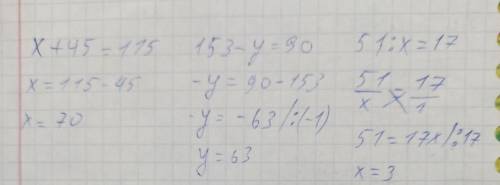 x + 45 = 115
x = 115 - 45
x = 70
153 - y = 90
-y = 90 - 153
-y = -63 /:(-1)
y = 63
51 : x = 17
51/x = 17/1
51 = 17x /:17
x = 3